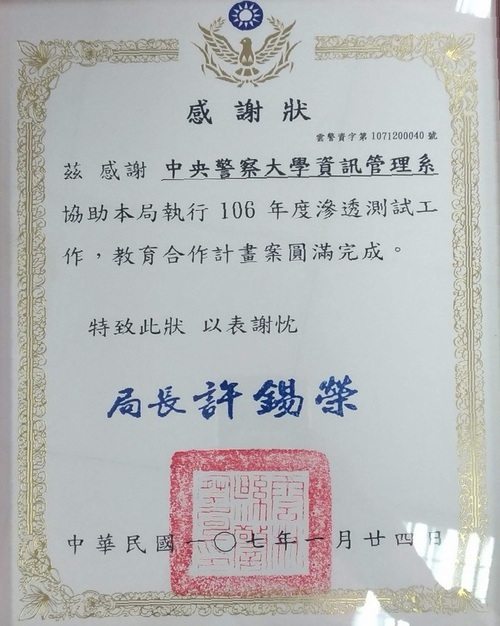 感謝狀
雲警資字第 1071200040 號
茲 感謝 中央警察大學資訊管理系
協助本局執行 106 年度滲透測試工
作，教育合作計畫案圓滿完成。
特致此狀 以表謝忱
局長許錫榮
中華民國一〇七年一月廿四日